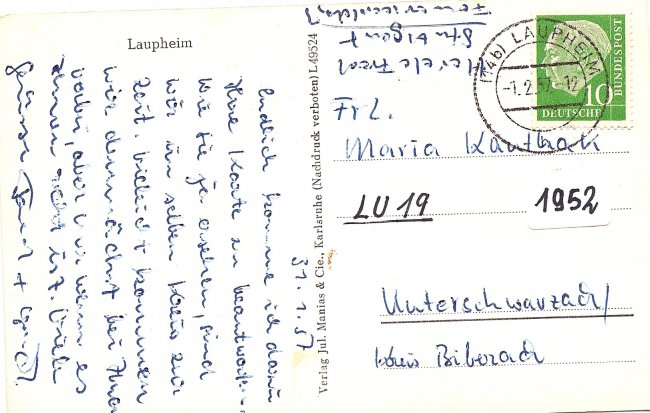 Laupheim
31.1.57
Endlich komme ich dazu
Ihre Karte zu beantworten.
Wie Sie ja ersehen, sind
wir im selben Kreis zur
Zeit. Vielleicht kommen
wir demnächst bei Ihnen
vorbei, aber nur wenn es
Ihnen recht ist. Viele
Grüsse
Verlag Jul. Manias & Cie., Karlsruhe (Nachdruck verboten) L 49524
Stuttgart
(14b) LAUPHEIM
-1.2.57-12
10
DEUTSCHE
BUNDESPOST
Frl.
Maria Kauthak
LU 19
1952
Unterschwarzach/
Kreis Biberach